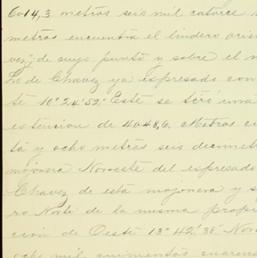 6014,3 metros seis mil catorce
metros encuentra el lindero orien
vez; de cuyo punto y sobre el
de Chavez ya espresado con
te 10° 24' 52" Este se tiró una
estension de 4048,6. Metros cu
ta y ocho metros seis decimetr
mojonera Noroeste del espresado
Chavez de esta mojonera y s
ro Norte de la misma propie
cion de Oeste 13° 42' 38" Nor
ocho mil, quinientos cuaren